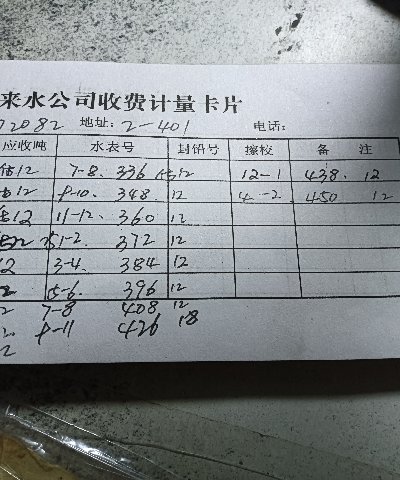 来水公司收费计量卡片
72082 地址: 2-401 电话:
应收吨 水表号 封铅号 擦校 备 注
估12 7-8. 336 估12 12-1 438. 12
估12 9-10. 348. 12 4-2 450 12
估12 11-12. 360 12
估12 1-2. 372 12
12 3-4. 384 12
2 5-6. 396 12
2 7-8 408 12
2. 9-11 426 18
2